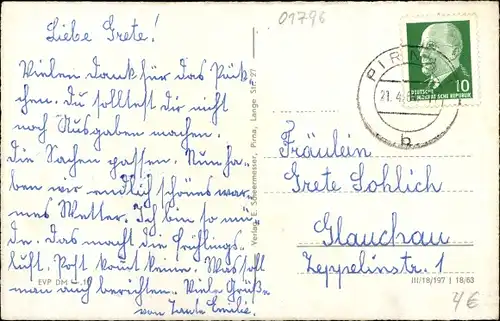 01796
Liebe Grete!
Vielen Dank für das Päck-
chen. Du solltest dir nicht
noch Ausgaben machen.
Die Sachen passen. Nun ha-
ben wir endlich schönes war-
mes Wetter. Ich bin so mü-
de. Das macht die Frühlings-
luft. Post kommt keine. Was soll
man auch berichten. Viele Grüße
von Tante Emilie.
EVP DM
Verlag E. Scheermesser, Pirna, Lange Str. 27
PIRNA
21. 4.
b
DEUTSCHE
DEMOKRATISCHE REPUBLIK
10
Fräulein
Grete Lohlich
Glauchau
Zeppelinstr. 1
III/18/197 | 18/63
4€